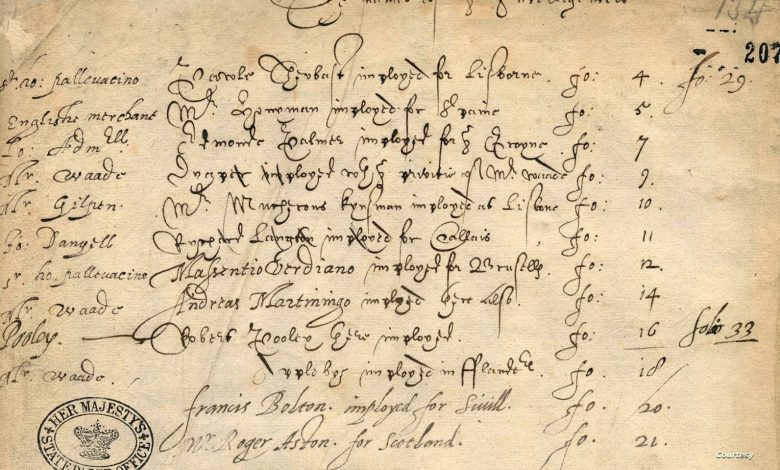 134
207
Sr. ho: pallevacino employed for Lisborne fo: 4. fo: 29.
Englishe merchant Mr. employed for Spaine fo: 5.
Lo: Admll Edmonde Palmer employed for ye Groyne fo: 7
Mr. Waade employed wth ye of Mr. Waade fo: 9.
Mr. Gilpen. Mr. kynsman imployed at Lisbone fo: 10.
Lo: Dangell Rychard Langton imployed for Callais, fo: 11
Sr. ho. pallevacino Massentio Verdiano imployed for Brusells fo: 12.
Mr. Waade Andreas Martiningo imployed here also. fo: 14
Pooley. Robert Pooley here imployed. fo: 16 folio 33
Mr. Waade. imployed in fflanders. fo: 18
francis Bolton. imployed for Sivill. fo. 20.
Mr. Roger Aston. for Scotland. fo. 21.
HER MAJESTYS
STATE PAPER OFFICE
Courtesy